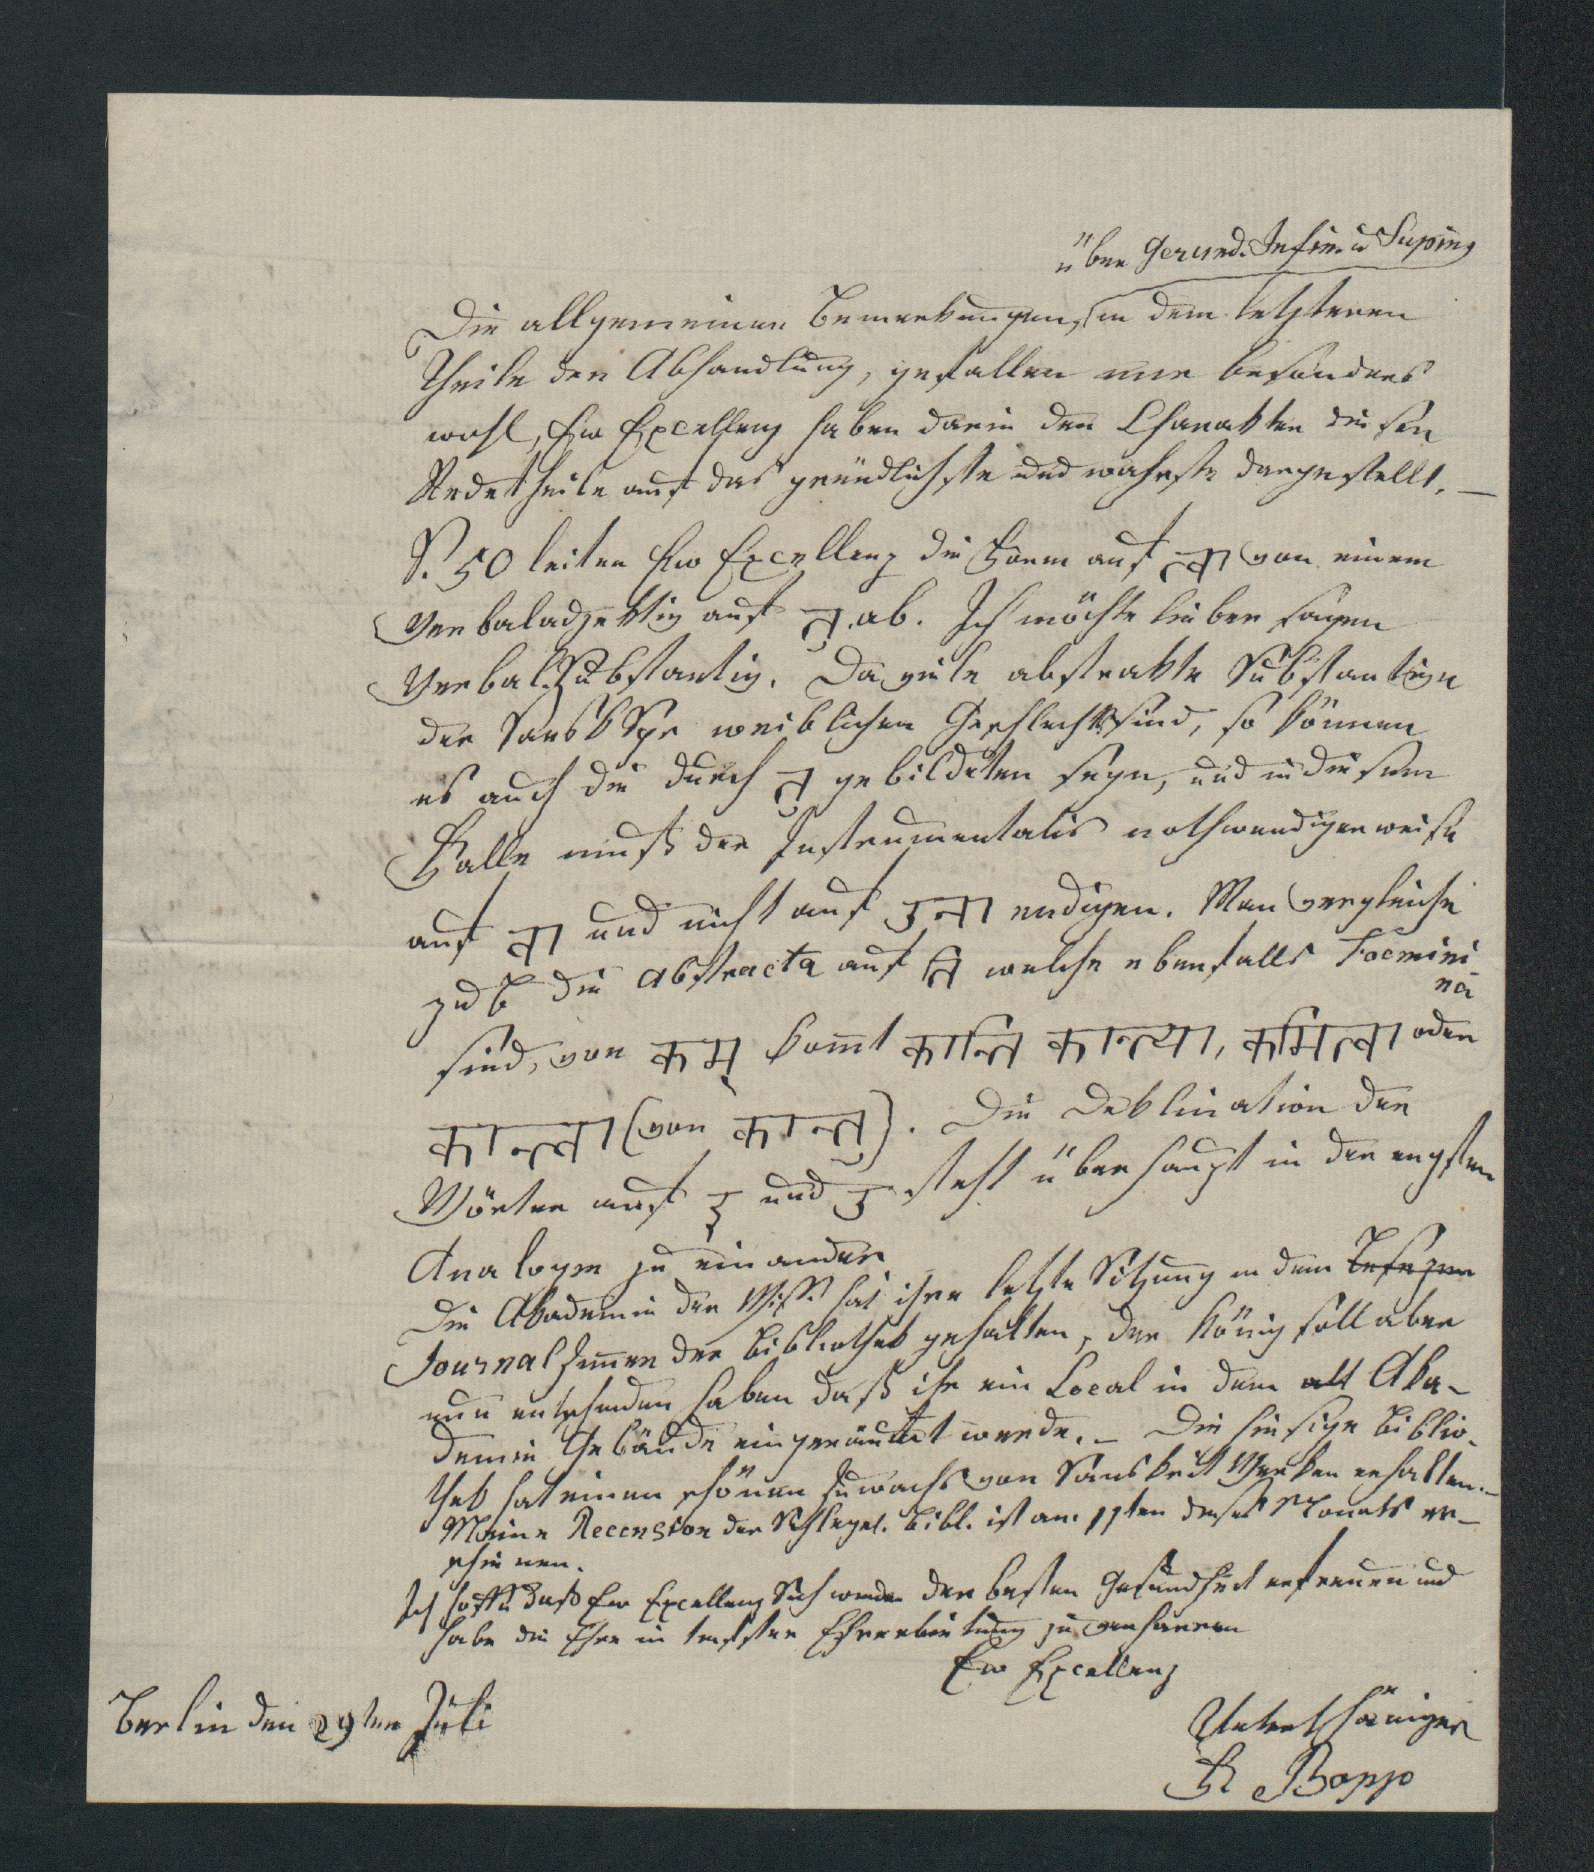 über Gerund. Infin. u Supina
Die allgemeinen Bemerkungen, in dem letzteren
Theile der Abhandlung, gefallen mir besonders
wohl, Ew Excellenz haben darin den Charakter dieser
Redetheile auf das gründlichste und wahrste dargestellt. —
S. 50 leiten Ew Excellenz die Form auf त्वा von einem
Verbaladjektiv auf तु ab. Ich möchte lieber sagen
Verbal-Substantiv. Da viele abstrakte Substantive
der Sansk Spr weiblichen Geschlechts sind, so können
es auch die durch तु gebildeten seyn, und in diesem
Falle muß der Instrumentalis nothwendigerweise
auf त्वा und nicht auf उना endigen. Man vergleiche
zu B die Abstracta auf ति welche ebenfalls Foemini
na
sind, von कम् kom̄t कान्ति कान्त्या, कमित्वा oder
कान्त्वा (von कान्तु). Die Deklination der
Wörter auf इ und उ steht überhaupt in der engsten
Analogie zu einander
Die Akademie der Wiss. hat ihre letzte Sitzung in dem
Journalzim̄er der Bibliothek gehalten, der König soll aber
nun entschieden haben daß ihr ein Local in dem alt Aka-
demie Gebäude eingeräumt werde. — Die hiesige Biblio-
thek hat einen schönen Zuwachs von Sanskrit Werken erhalten. —
Meine Recension der Schlegel. Bibl. ist am 17ten dieses Monats er-
schienen.
Ich hoffe daß Ew Excellenz Sich wieder der besten Gesundheit erfreuen und
habe die Ehre in tiefster Ehrerbietung zu verharren
Ew Excellenz
Berlin den 29ten Juli
Unterthäniger
F. Bopp